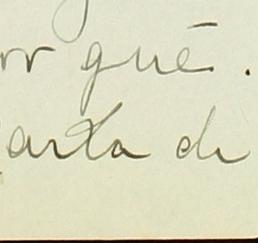 or qué.
arta de